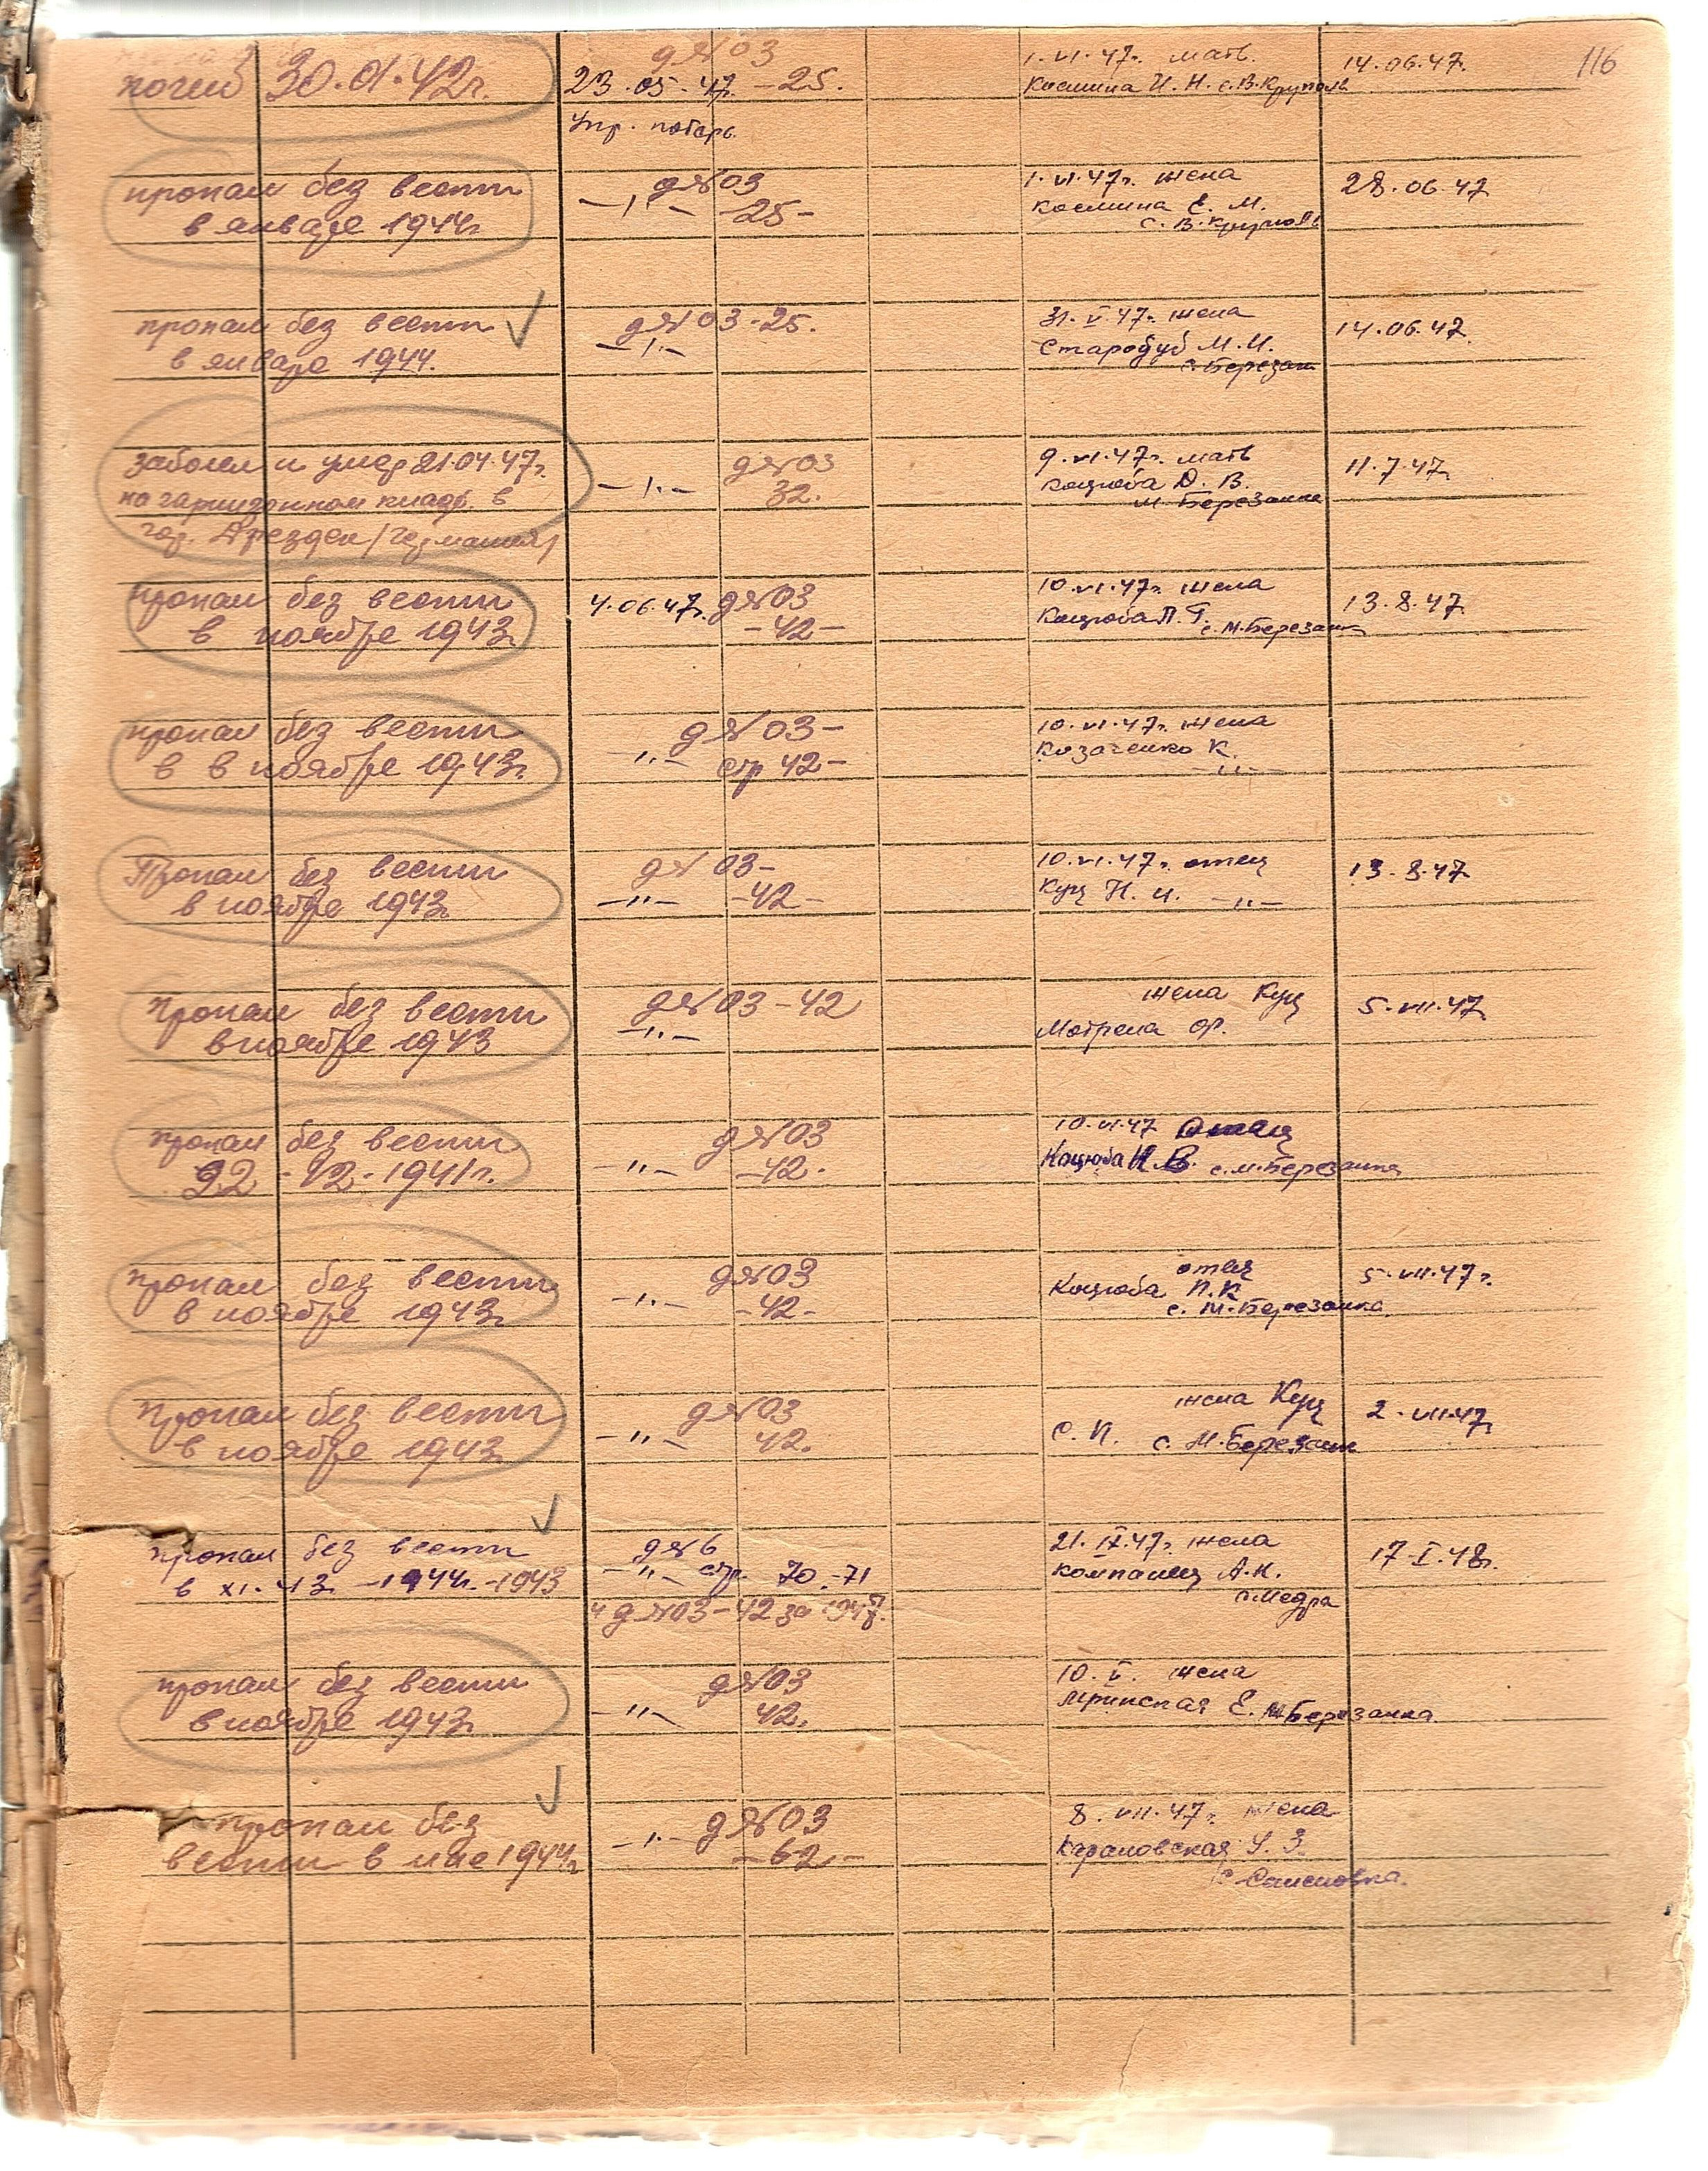 116
погиб 30.01.42г.
д №03
23.05.47. -25.
Упр. потерь
1.VI.47г. мать
Космина И. Н. с. В. Круполь
14.06.47.
пропал без вести
в январе 1944г.
д №03
—"— -25-
1.VI.47г. жена
Космина Е. М.
с. В. Круполь
28.06.47
пропал без вести
в январе 1944.
д №03-25.
—"—
31.V.47г. жена
Стародуб М. И.
с. Березань
14.06.47.
заболел и умер 21.04.47г.
на гарнизонном кладб. в
гор. Дрезден /Германия/
д №03
—"— 32.
9.VI.47г. мать
Коцюба Д. В.
М Березанка
11.7.47.
пропал без вести
в ноябре 1943г.
4.06.47г. д №03
-42-
10.VI.47г. жена
Коцюба П. Г.
с. М. Березанка
13.8.47.
пропал без вести
в в ноябре 1943г.
д №03-
—"— стр 42-
10.VI.47г. жена
Козаченко К.
—"—
Пропал без вести
в ноябре 1943г.
д №03-
—"— -42-
10.VI.47г. отец
Куц Н. И. —"—
13.8.47
пропал без вести
в ноябре 1943
д №03-42
—"—
жена Куц
Мотрена
5.VII.47г.
пропал без вести
22-12-1941г.
д №03
—"— -42.
10.VI.47 Отец
Коцюба И. В. с. М. Березанка
пропал без вести
в ноябре 1943г.
д №03
—"— -42-
отец
Коцюба П. К
с. М. Березанка.
5.VII.47г.
пропал без вести
в ноябре 1943г.
д №03
—"— 42.
жена Куц
С. П. с. М. Березанк
2.VII.47г.
пропал без вести
в XI.43 -1944г.-1943
д №6
—"— стр. 70-71
и д №03-42 за 1947г.
21.IX.47г. жена
Компанец А. К.
с. Недра
17.I.48г.
пропал без вести
в ноябре 1943г.
д №03
—"— 42.
10.V. жена
Е. М Березанка
пропал без
вести в мае 1944г.
д №03
—"— -62-
8.VII.47г. жена
Карановская У. З.
с. Семеновка.